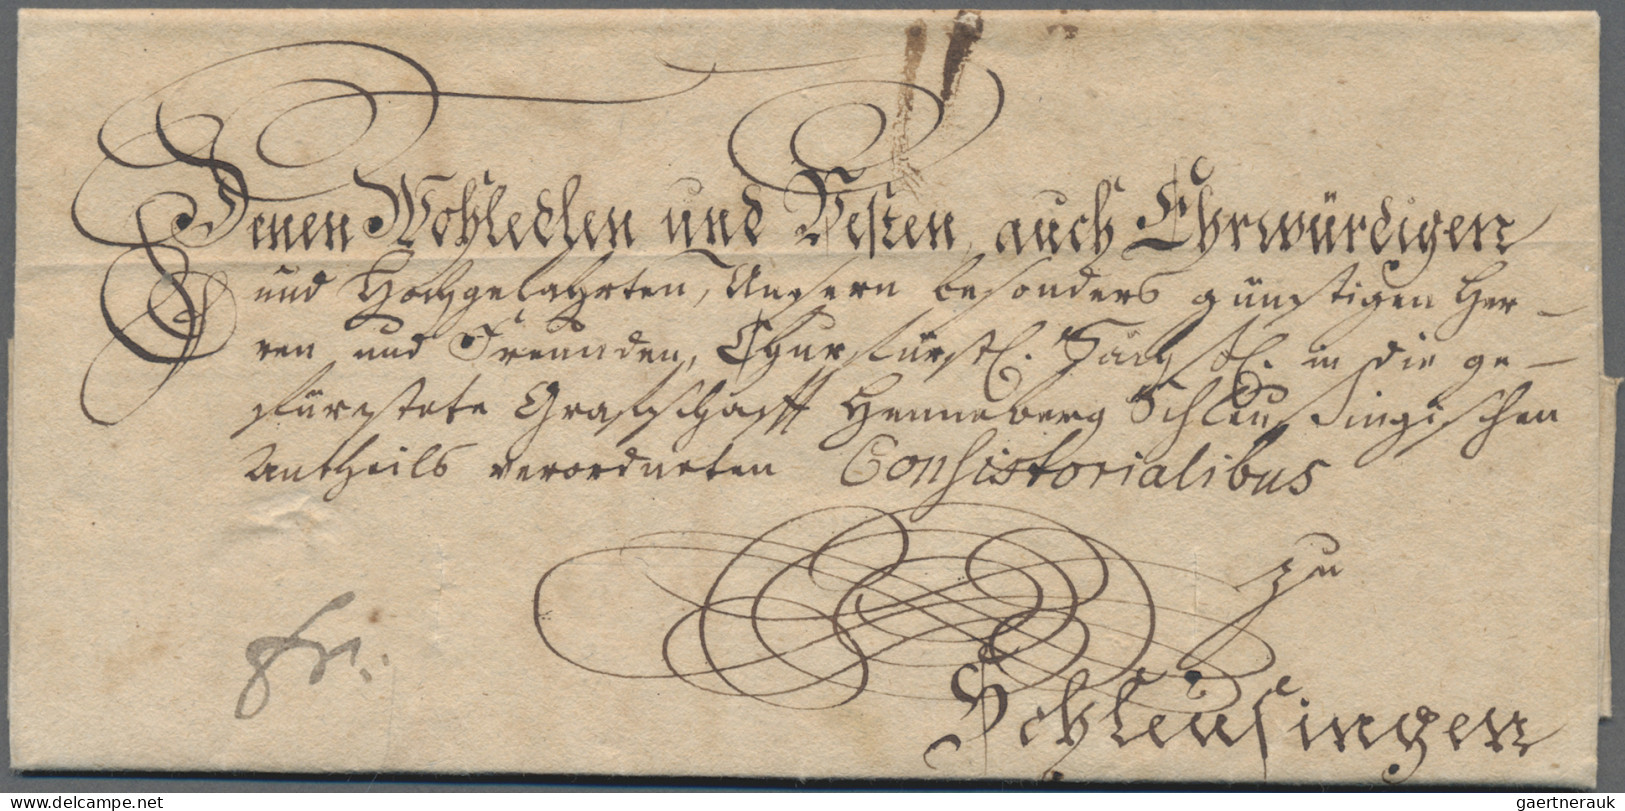 Denen Wohledlen und Vesten, auch Ehrwürdigen
und Hochgelahrten, Unsern besonders günstigen Her-
ren und Freunden, Churfürstl. Sächßl. in die ge-
fürstete Graffschafft Henneberg Schleusingischen
Antheils verordneten Consistorialibus
zu
Schleusingen
www.delcampe.net
gaertnerauk